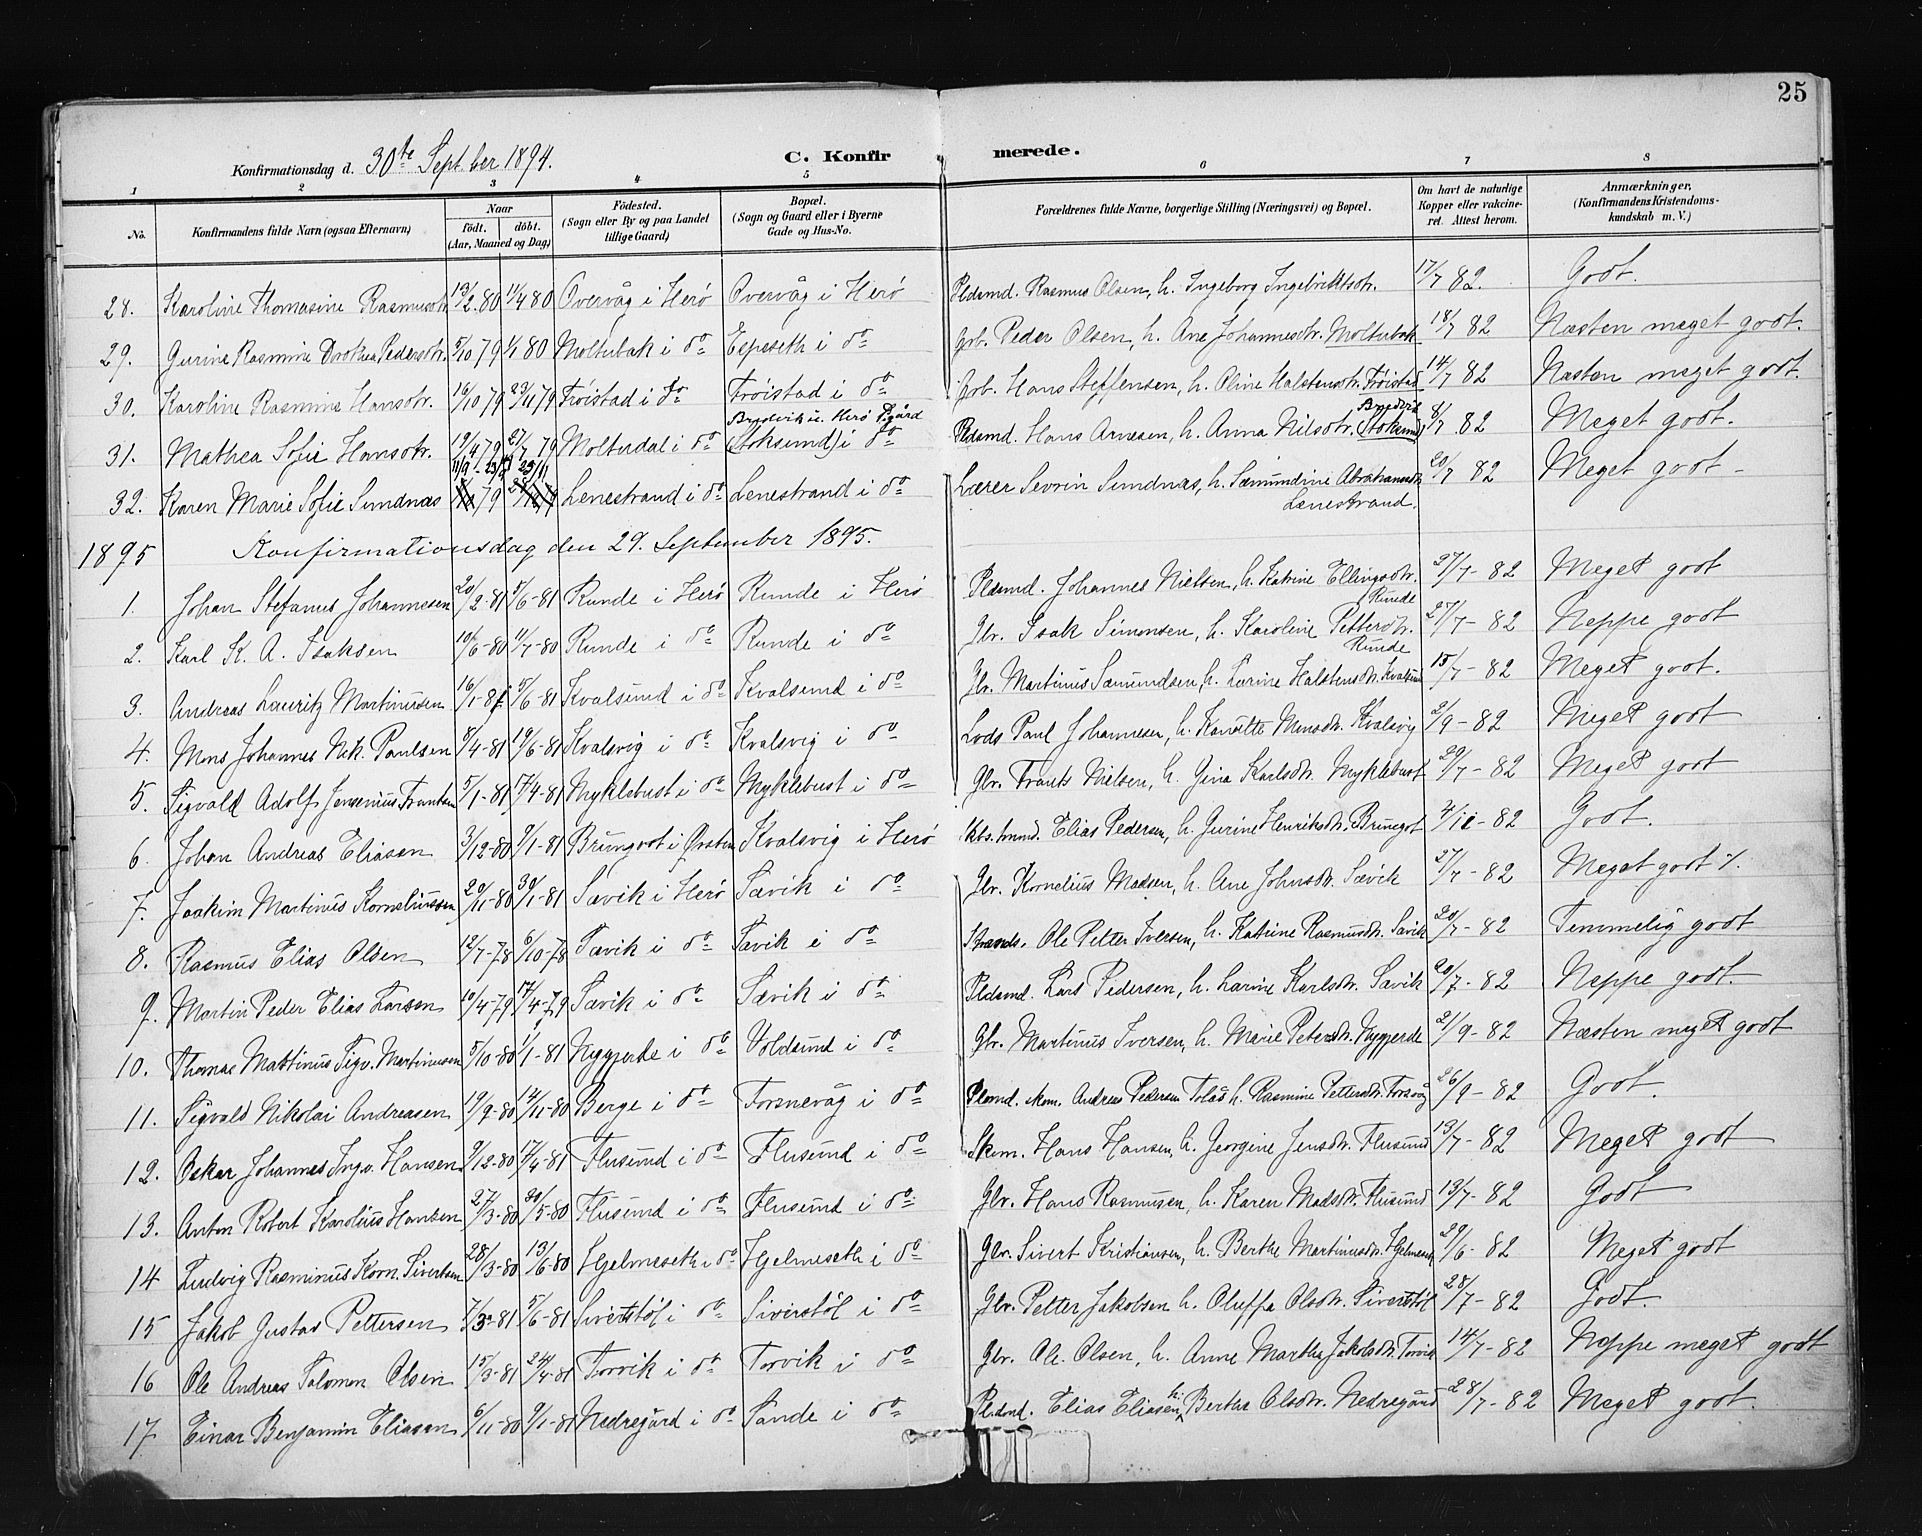 25
Konfirmationsdag d. 30te Sept.ber 1894. C. Konfirmerede.
1 2 3 4 5 6 7 8
No. Konfirmandens fulde Navn (ogsaa Efternavn) Naar født. døbt. (Aar, Maaned og Dag) Fødested. (Sogn eller By og paa Landet tillige Gaard) Bopæl. (Sogn og Gaard eller i Byerne Gade og Hus-No. Forældrenes fulde Navne, borgerlige Stilling (Næringsvei) og Bopæl. Om havt de naturlige Kopper eller vaccineret. Attest herom. Anmærkninger, (Konfirmandens Kristendomskundskab m. V.)
28. Karoline Thomasine Rasmusdtr. 13/2.80 1/4 80 Overvåg i Herø Overvåg i Herø Pldsmd. Rasmus Olsen, h. Ingeborg Ingebrigtsdtr. 17/7 82. Godt.
29. Gurine Rasmine Drothea Pedersdtr. 5/10 79 1/1 80 Moltubak i do Espeseth i do Gbr. Peder Olsen, h. Ane Johannesdtr. Moltubak 18/7 82 Næsten meget godt.
30. Karoline Rasmine Hansdtr. 16/10 79 23/11 79 Frøistad i do Frøistad i do Gbr. Hans Steffensen, h. Oline Halstensdtr. Frøistad 14/7 82 Næsten meget godt.
31. Mathea Sofie Hansdtr. 19/4 79 27/7 79 Molturdal i do (Stoksund) i do Pldsmd. Hans Arnesen, h. Anna Nilsdtr. (Stoksund) 8/7 82 Meget godt.
32. Karen Marie Sofie Sundnæs 79 Lenestrand i do Lenestrand i do Lærer Sevrin Sundnæs, h. Sæmundine Abrahamsdtr. Lænestrand. 20/7 82 Meget godt -
1895 Konfirmationsdag den 29. September 1895.
1. Johan Stefanus Johannesen 20/2-81 5/6-81 Runde i Herø Runde i Herø Pldsmd. Johannes Nielsen, h. Katrine Ellingsdtr. Runde 27/7-82 Meget godt
2. Karl K. A. Isaksen 10/6-80 11/7-80 Runde i do Runde i do Gbr. Isak Simonsen, h. Karoline Pettersdtr. Runde 27/7-82 Neppe godt
3. Andreas Lauritz Martinusen 16/1-81 5/6-81 Kvalsund i do Kvalsund i do Gbr. Martinus Sæmundsen, h. Larine Halstensdtr. Kvalsund 15/7-82 Meget godt.
4. Mons Johannes Nik. Paulsen 8/4-81 19/6-81 Kvalsvig i do Kvalsvig i do Lods Paul Johannesen, h. Kanutte Monsdtr. Kvalsvig 2/9-82 Meget godt
5. Sigvald Adolf Jensenius Frantsen 5/1-81 17/4-81 Myklebust i do Myklebust i do Gbr. Frants Nielsen, h. Gina Karlsdtr. Myklebust 29/7-82 Meget godt
6. Johan Andreas Eliasen 3/12-80 9/1-81 Brungot i Ørsten Kvalsvig i Herø Elias Pedersen, h. Gurine Henriksdtr. Brungot 4/11-82 Godt.
7. Joakim Martinus Korneliussen 20/11-80 30/1-81 Sævik i Herø Sævik i do Gbr. Kornelius Madsen, h. Ane Johnsdtr. Sævik 27/7-82 Meget godt ٪.
8. Rasmus Elias Olsen 12/7-78 6/10-78 Sævik i do Sævik i do Strands. Ole Petter Iversen, h. Katrine Rasmusdtr. Sævik 20/7-82 Temmelig godt
9. Martin Peder Elias Larsen 10/4-79 17/4-79 Sævik i do Sævik i do Pldsmd. Lars Pedersen, h. Larine Karlsdtr. Sævik 20/7-82 Neppe godt.
10. Thomas Mattinus Sigv. Martinusen 5/10-80 1/1-81 Nygjerde i do Voldsund i do Gbr. Martinus Iversen, h. Marie Petersdtr. Nygjerde 21/9-82 Næsten meget godt
11. Sigvald Nikolai Andreasen 19/9-80 14/11-80 Berge i do Fosnevåg i do Andreas Pedersen Tolås h. Rasmine Pettersdtr. Fosnvåg 26/9-82 Godt.
12. Oskar Johannes Ingv. Hansen 9/12-80 17/4-81 Flusund i do Flusund i do Skom. Hans Hansen, h. Georgine Jensdtr. Flusund 13/7-82 Meget godt
13. Anton Robert Karolius Hansen 27/3-80 20/5-80 Flusund i do Flusund i do Gbr. Hans Rasmusen, h. Karen Madsdtr. Flusund 13/7-82 Godt
14 Ludvig Rasminus Korn. Sivertsen 28/3-80 13/6-80 Hjelmeseth i do Hjelmeseth i do Gbr. Sivert Kristiansen, h. Berthe Martinusdtr. Hjelmeseth 29/6-82 Meget godt
15 Jakob Gustav Pettersen 7/3-81 5/6-81 Siverstøl i do Siverstøl i do Gbr. Petter Jakobsen h. Oluffa Olsdtr. Siverstøl 28/7-82 Godt.
16 Ole Andreas Salomon Olsen 15/3-81 24/4-81 Torvik i do Torvik i do Gbr. Ole Olsen, h. Anne Martha Jakobsdtr. Torvik 14/7-82 Neppe meget godt
17 Einar Benjamin Eliasen 6/11-80 9/1-81 Nedregård i do Sande i do Pldsmd. Elias Eliasen h. Berthe Olsdtr. Nedregård 28/7-82 Meget godt.